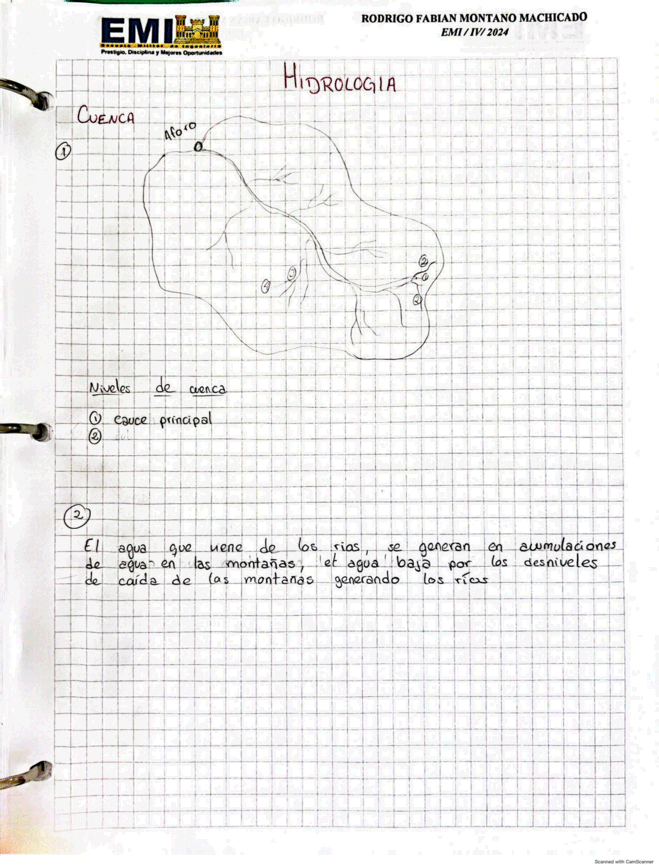 EMI
Escuela Militar de Ingeniería
Prestigio, Disciplina y Mejores Oportunidades
RODRIGO FABIAN MONTANO MACHICADO
EMI / IV/ 2024
HIDROLOGIA
CUENCA
Aforo
1
2
1
2
1
2
Niveles de cuenca
1 cauce principal
2
2
El agua que viene de los rios, se generan en acumulaciones
de agua en las montañas, el agua baja por los desniveles
de caída de las montañas generando los ríos
Scanned with CamScanner